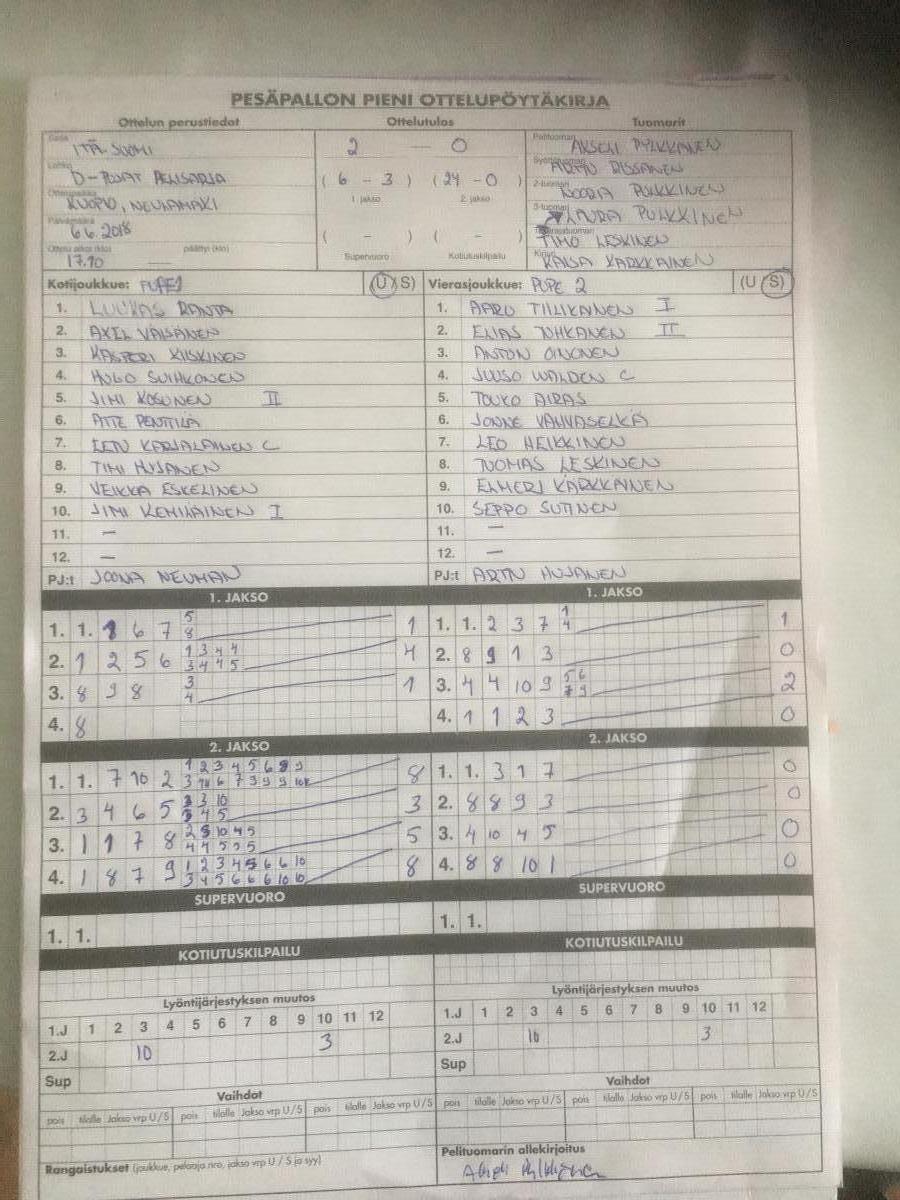 PESÄPALLON PIENI OTTELUPÖYTÄKIRJA
Ottelun perustiedot Ottelutulos Tuomarit
ITÄ-SUOMI 2 — 0 Pelituomari PYLKKÄNEN
D-POJAT (6 - 3) (24 - 0) RISSANEN
Ottelupaikka KUOPIO, NEULAMÄKI 1. jakso 2. jakso 2-tuomari NOORA PULKKINEN
Päivämäärä 6.6.2018 3-tuomari LAURA PULKKINEN
Ottelu alkoi (klo) päättyi (klo) ( - ) ( - ) TIMO LESKINEN
17.10 Supervuoro Kotiutuskilpailu Kirjuri KAISA KÄRKKÄINEN
Kotijoukkue: PUPE1 (U/S) Vierasjoukkue: PUPE 2 (U/S)
1. LUUKAS RANTA 1. AARO TIILIKAINEN I
2. AXEL VÄISÄNEN 2. ELIAS TUHKANEN II
3. KASPERI KIISKINEN 3. ANTON OINONEN
4. HUGO SUIHKONEN 4. JUUSO WALDEN C
5. JIMI KOSUNEN II 5. TOUKO AIRAS
6. ATTE PENTTILÄ 6. JONNE VAHVASELKÄ
7. EETU KARJALAINEN C 7. LEO HEIKKINEN
8. TIMI HUJANEN 8. TUOMAS LESKINEN
9. VEIKKA ESKELINEN 9. ELMERI KÄRKKÄINEN
10. JIMI KEMILÄINEN I 10. SEPPO SUTINEN
11. — 11. —
12. — 12. —
PJ:t JOONA NEUMAN PJ:t ARTTU HUJANEN
1. JAKSO 1. JAKSO
1. 1. 1 6 7 5 8 1 1. 1. 2 3 7 1 4 1
2. 1 2 5 6 1 3 4 4 3 4 4 5 4 2. 8 9 1 3 0
3. 8 9 8 3 4 1 3. 4 4 10 9 5 6 7 9 2
4. 8 4. 1 1 2 3 0
2. JAKSO 2. JAKSO
1. 1. 7 10 2 1 2 3 4 5 6 8 9 8 1. 1. 3 1 7 0
2. 3 4 6 5 3 10 3 4 5 3 2. 8 8 9 3 0
3. 1 1 7 8 2 5 10 4 5 4 4 5 5 5 5 3. 4 10 4 5 0
4. 1 8 7 9 1 2 3 4 5 6 6 10 3 4 5 6 6 6 10 10 8 4. 8 8 10 1 0
SUPERVUORO SUPERVUORO
1. 1. 1. 1.
KOTIUTUSKILPAILU KOTIUTUSKILPAILU
Lyöntijärjestyksen muutos Lyöntijärjestyksen muutos
1.J 1 2 3 4 5 6 7 8 9 10 11 12 1.J 1 2 3 4 5 6 7 8 9 10 11 12
2.J 10 3 2.J 10 3
Sup Sup
Vaihdot Vaihdot
pois tilalle Jakso vrp U/S pois tilalle Jakso vrp U/S pois tilalle Jakso vrp U/S pois tilalle Jakso vrp U/S pois tilalle Jakso vrp U/S pois tilalle Jakso vrp U/S
Rangaistukset (joukkue, pelaaja nro, jakso vrp U / S ja syy) Pelituomarin allekirjoitus